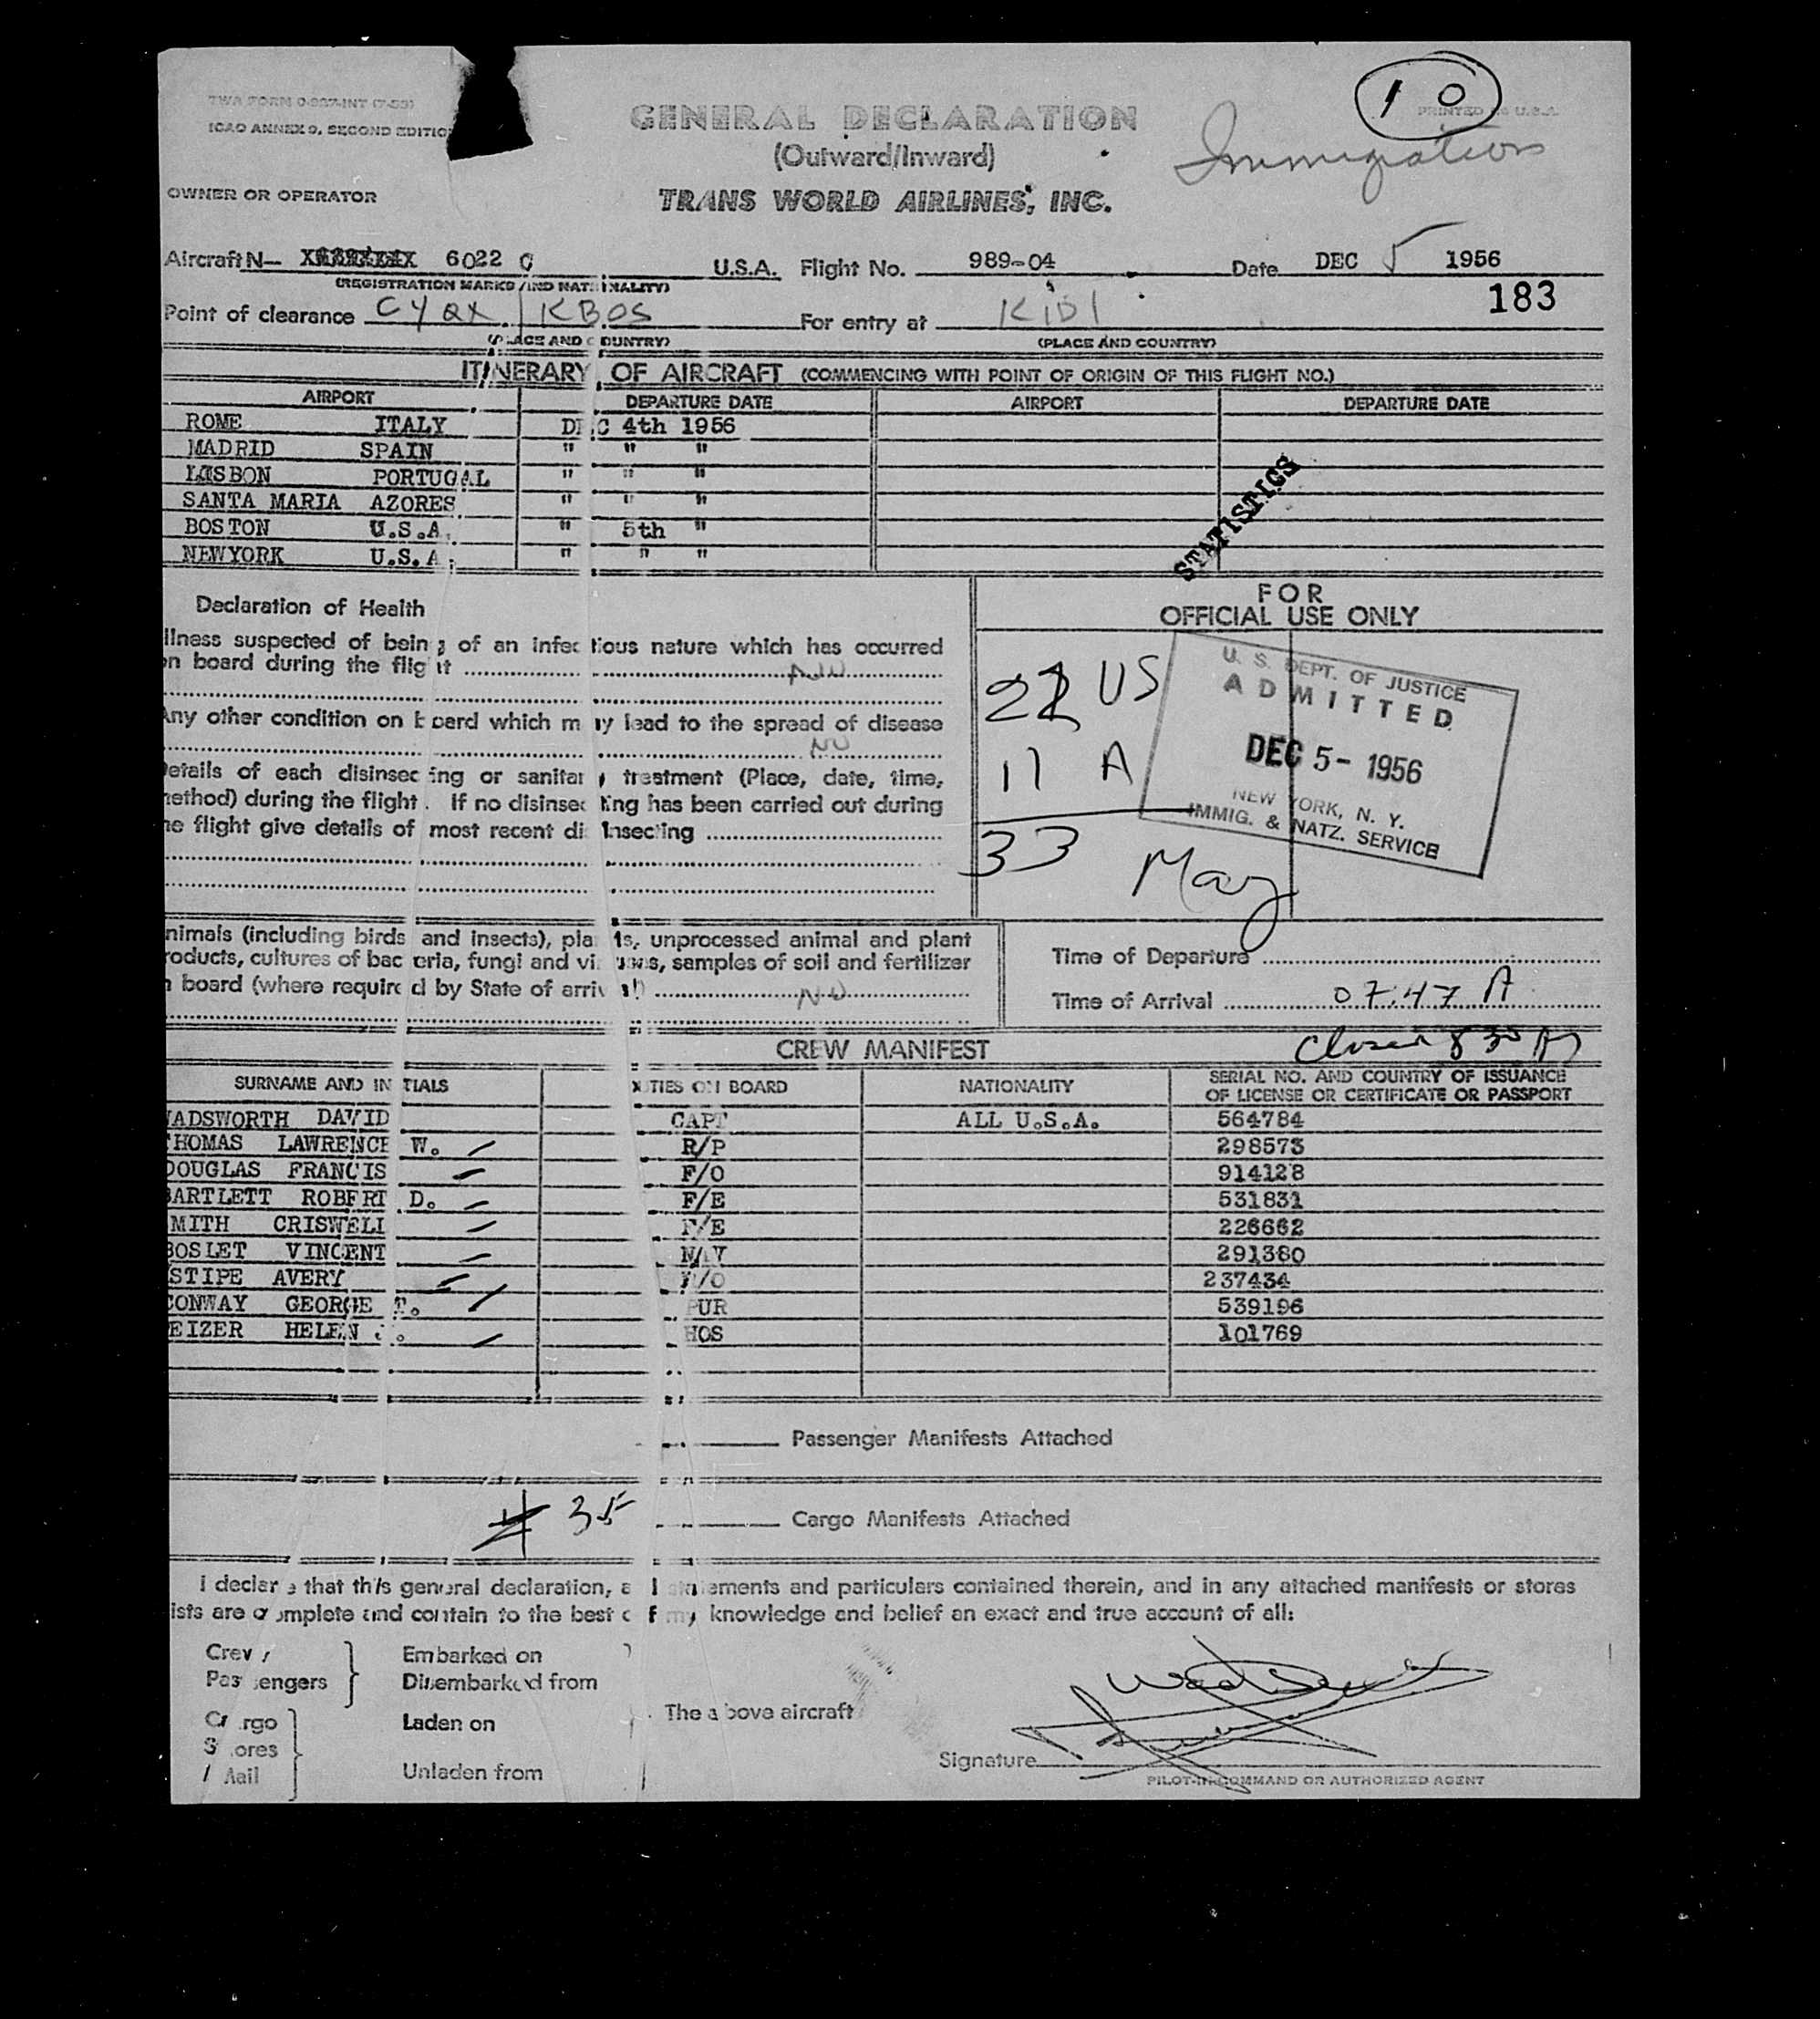 TWA FORM 0-937-INT (7-53)
ICAO ANNEX 9, SECOND EDITIO
1 0
PRINTED IN U.S.A.
GENERAL DECLARATION
(Outward/Inward)
Immigration
OWNER OR OPERATOR
TRANS WORLD AIRLINES, INC.
Aircraft N— 6022 C U.S.A. Flight No. 989-04 Date DEC 5 1956
(REGISTRATION MARKS AND NATIONALITY)
183
Point of clearance CYQX / KBOS For entry at KIDL
(PLACE AND COUNTRY) (PLACE AND COUNTRY)
ITINERARY OF AIRCRAFT (COMMENCING WITH POINT OF ORIGIN OF THIS FLIGHT NO.)
AIRPORT DEPARTURE DATE AIRPORT DEPARTURE DATE
ROME ITALY DEC 4th 1956
MADRID SPAIN " " "
LISBON PORTUGAL " " "
SANTA MARIA AZORES " " "
BOSTON U.S.A. " 5th "
NEWYORK U.S.A. " " "
STATISTICS
Declaration of Health
llness suspected of being of an infectious nature which has occurred
on board during the flight NO
Any other condition on board which may lead to the spread of disease
NO
Details of each disinsecting or sanitary treatment (Place, date, time,
method) during the flight. If no disinsecting has been carried out during
he flight give details of most recent disinsecting
FOR
OFFICIAL USE ONLY
22 US
11 A
33
May
U. S. DEPT. OF JUSTICE
ADMITTED
DEC 5- 1956
NEW YORK, N. Y.
IMMIG. & NATZ. SERVICE
nimals (including birds and insects), plants, unprocessed animal and plant
roducts, cultures of bacteria, fungi and viruses, samples of soil and fertilizer
n board (where required by State of arrival) NO
Time of Departure
Time of Arrival 07:47 A
CREW MANIFEST
Closed 830 A
SURNAME AND INITIALS DUTIES ON BOARD NATIONALITY SERIAL NO. AND COUNTRY OF ISSUANCE
OF LICENSE OR CERTIFICATE OR PASSPORT
WADSWORTH DAVID CAPT ALL U.S.A. 564784
THOMAS LAWRENCE W. R/P 298573
DOUGLAS FRANCIS F/O 914128
BARTLETT ROBERT D. F/E 531831
MITH CRISWELL F/E 226662
BOSLET VINCENT NAV 291380
STIPE AVERY /O 237434
CONWAY GEORGE T. PUR 539196
EIZER HELEN J. HOS 101769
Passenger Manifests Attached
# 35
Cargo Manifests Attached
I declare that this general declaration, all statements and particulars contained therein, and in any attached manifests or stores
ists are complete and contain to the best of my knowledge and belief an exact and true account of all:
Crew
Passengers
Embarked on
Disembarked from
Cargo
Stores
Mail
Laden on
Unladen from
The above aircraft
Signature
PILOT-IN-COMMAND OR AUTHORIZED AGENT